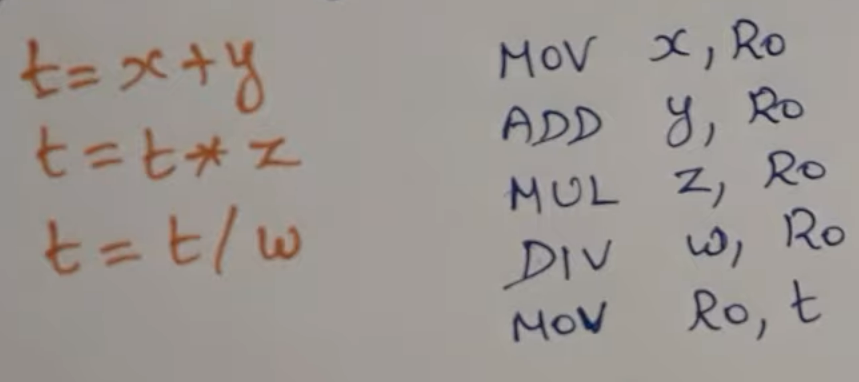 t = x + y
t = t * z
t = t / w
MOV x, Ro
ADD y, Ro
MUL z, Ro
DIV w, Ro
MOV Ro, t